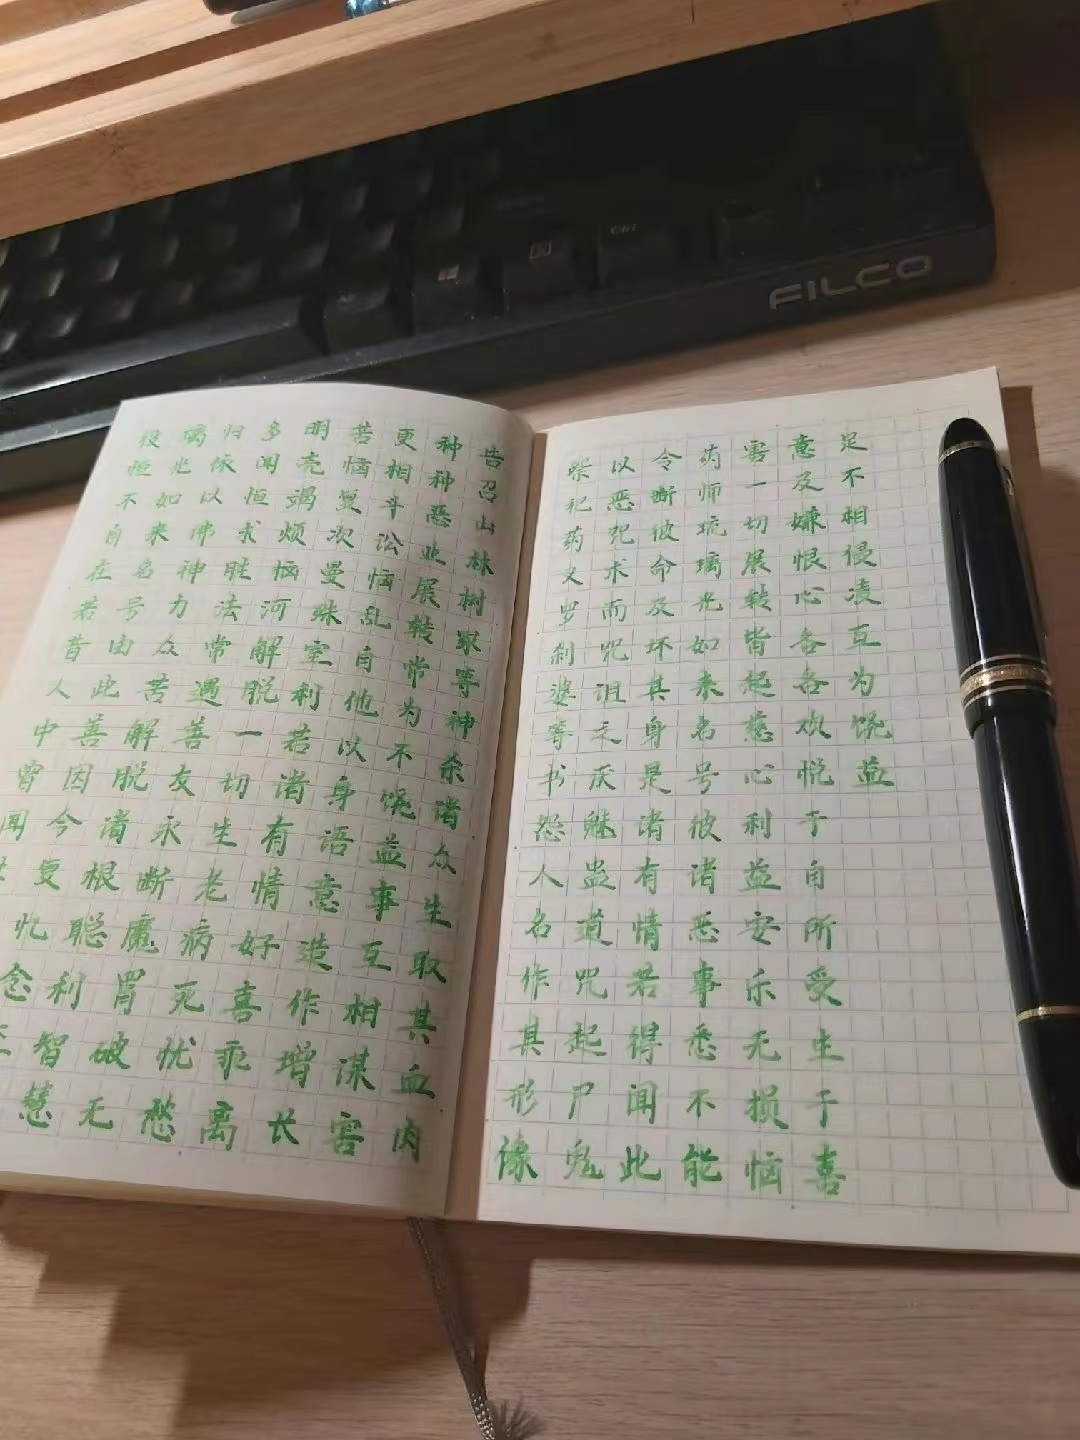 役恒不自在若昔人中曾闻
璃光如来名号由此善因今复忆念
归依以佛神力众苦解脱诸根聪利智慧
多闻恒求胜法常遇善友永断魔罥破无
明壳竭烦恼河解脱一切生老病死忧愁
苦恼曼次曼殊室利若诸有情好喜乖离
更相斗讼恼乱自他以身语意造作增长
种种恶业展转常为不饶益事互相谋害
告召山林树冢等神杀诸众生取其血肉
祭祀药叉罗刹婆等书怨人名作其形像
以恶咒术而咒诅之厌魅蛊道咒起尸鬼
令断彼命及坏其身是诸有情若得闻此
药师琉璃光如来名号彼诸恶事悉不能
害一切展转皆起慈心利益安乐无损恼
意及嫌恨心各各欢悦于自所受生于喜
足不相侵凌互为饶益
FILCO
Ctrl